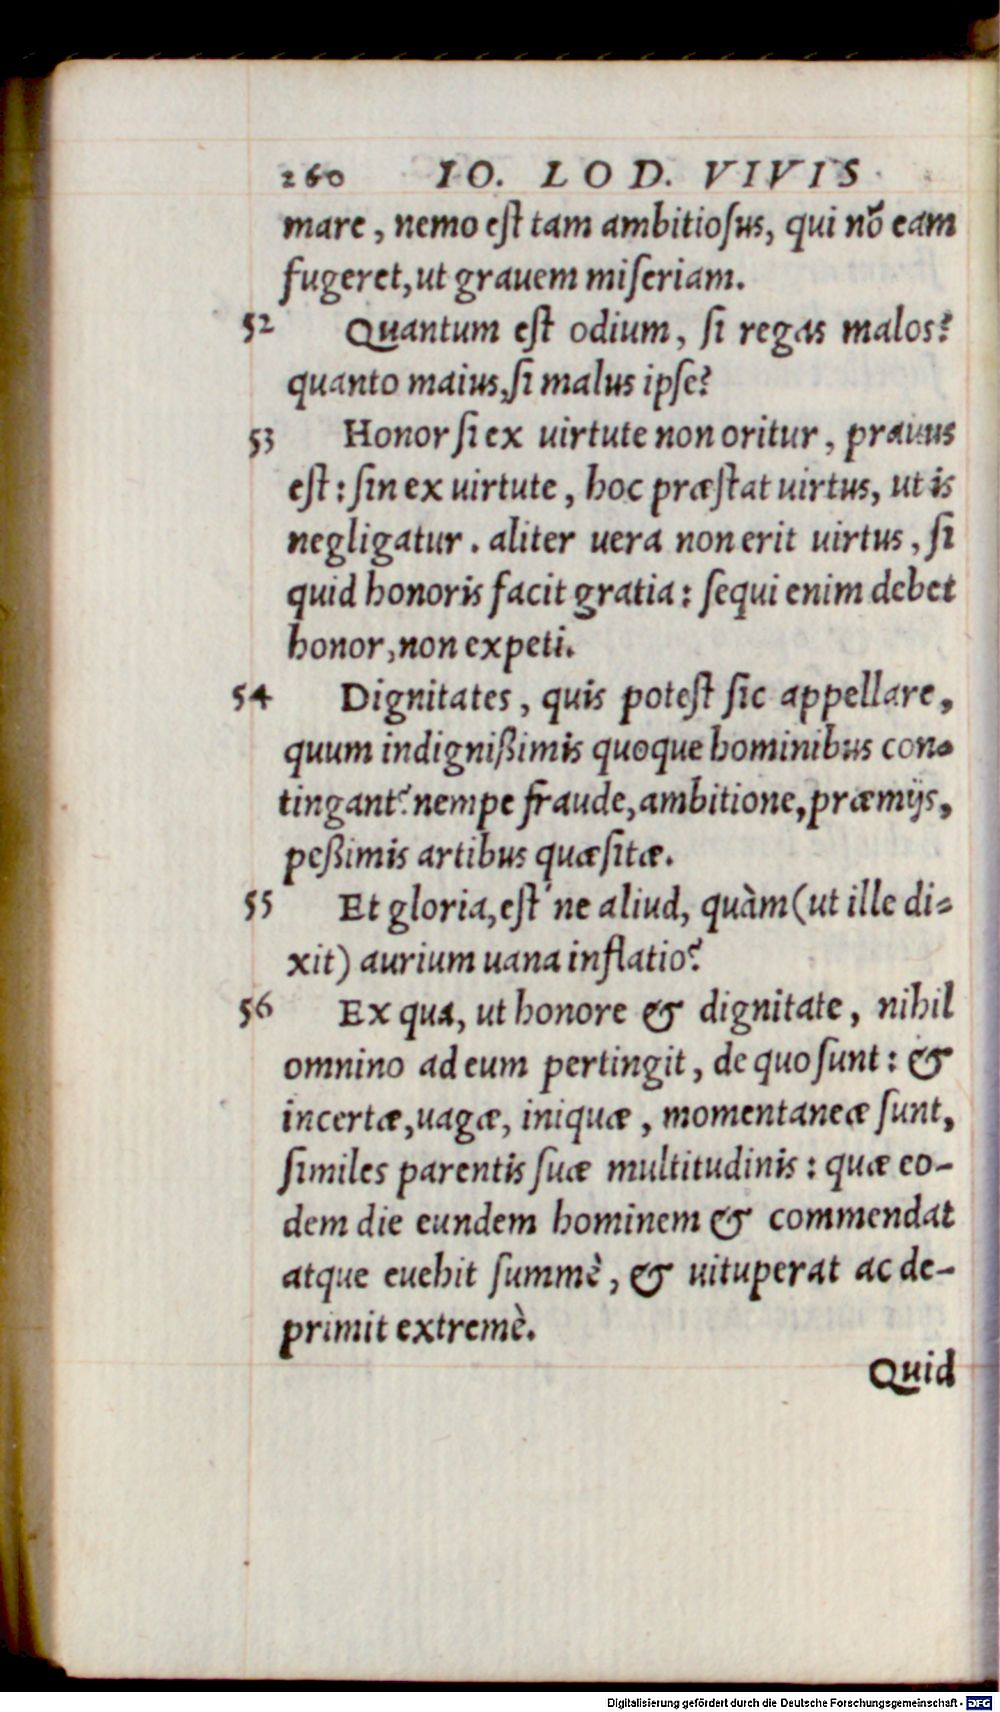 260 IO. LOD. VIVIS
mare, nemo eſt tam ambitioſus, qui nõ eam
fugeret, ut grauem miſeriam.
52 Quantum eſt odium, ſi regas malos?
quanto maius, ſi malus ipſe?
53 Honor ſi ex uirtute non oritur, prauus
eſt: ſin ex uirtute, hoc præſtat uirtus, ut is
negligatur. aliter uera non erit uirtus, ſi
quid honoris facit gratia: ſequi enim debet
honor, non expeti.
54 Dignitates, quis poteſt ſic appellare,
quum indignißimis quoque hominibus con-
tingant? nempe fraude, ambitione, præmijs,
peßimis artibus quæſitæ.
55 Et gloria, eſt'ne aliud, quàm (ut ille di-
xit) aurium uana inflatio?
56 Ex qua, ut honore & dignitate, nihil
omnino ad eum pertingit, de quo ſunt: &
incertæ, uagæ, iniquæ, momentaneæ ſunt,
ſimiles parentis ſuæ multitudinis: quæ eo-
dem die eundem hominem & commendat
atque euehit ſummè, & uituperat ac de-
primit extremè.
Quid
Digitalisierung gefördert durch die Deutsche Forschungsgemeinschaft - DFG